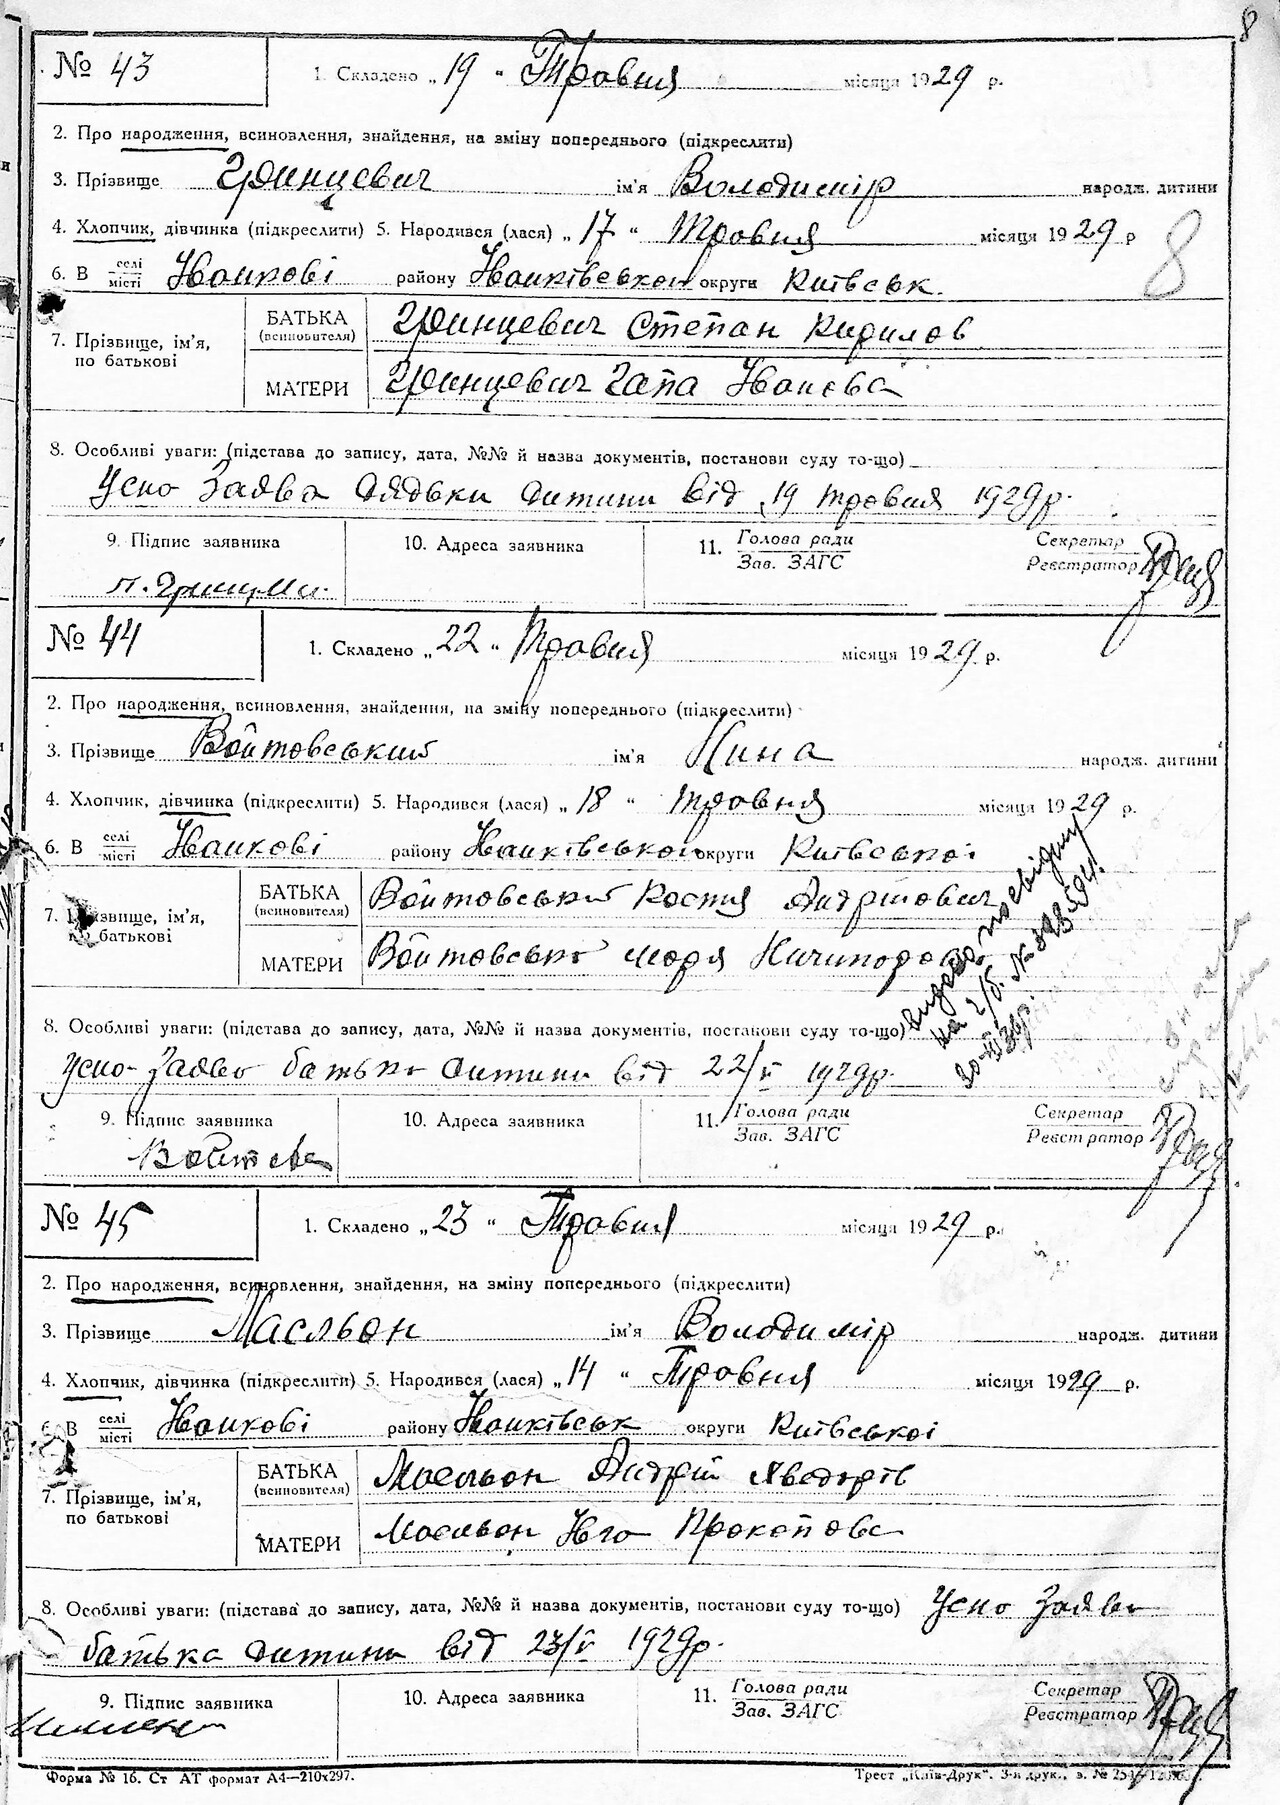 8
№ 43 1. Складено „ 19 " Травня місяця 1929 р.
2. Про народження, всиновлення, знайдення, на зміну попереднього (підкреслити)
3. Прізвище Гринцевич ім'я Володимір народж. дитини
4. Хлопчик, дівчинка (підкреслити) 5. Народився (лася) „ 17 " Травня місяця 1929 р
8
6. В селі місті Іванкові району Іванківської округи Київськ.
7. Прізвище, ім'я, по батькові
БАТЬКА (всиновителя) Гринцевич Степан Кирилов
МАТЕРИ Гринцевич Гапа Іванова
8. Особливі уваги: (підстава до запису, дата, №№ й назва документів, постанови суду то-що)
Усно Заява дядьки дитини від 19 травня 1929р.
9. Підпис заявника 10. Адреса заявника 11. Голова ради Зав. ЗАГС Секретар Реєстратор
№ 44 1. Складено „ 22 " Травня місяця 1929 р.
2. Про народження, всиновлення, знайдення, на зміну попереднього (підкреслити)
3. Прізвище Войтовський ім'я Нина народж. дитини
4. Хлопчик, дівчинка (підкреслити) 5. Народився (лася) „ 18 " травня місяця 1929 р.
6. В селі місті Іванкові району Іванківської округи Київської
7. Прізвище, ім'я, по батькові
БАТЬКА (всиновителя) Войтовський Костя Андрійович
МАТЕРИ Войтовська Маря Ничипорова
видано посвідку
8. Особливі уваги: (підстава до запису, дата, №№ й назва документів, постанови суду то-що)
Усно Заява батька дитини від 22/V 1929р.
9. Підпис заявника 10. Адреса заявника 11. Голова ради Зав. ЗАГС Секретар Реєстратор
№ 45 1. Складено „ 23 " Травня місяця 1929 р.
2. Про народження, всиновлення, знайдення, на зміну попереднього (підкреслити)
3. Прізвище Масльон ім'я Володимір народж. дитини
4. Хлопчик, дівчинка (підкреслити) 5. Народився (лася) „ 14 " Травня місяця 1929 р.
6. В селі місті Іванкові району Іванківськ округи Київської
7. Прізвище, ім'я, по батькові
БАТЬКА (всиновителя) Масльон Андрій
МАТЕРИ Масльон Прокопова
8. Особливі уваги: (підстава до запису, дата, №№ й назва документів, постанови суду то-що) Усно Заява
батька дитини від 23/V 1929р.
9. Підпис заявника 10. Адреса заявника 11. Голова ради Зав. ЗАГС Секретар Реєстратор
Форма № 16. Ст АТ формат А4—210х297. Трест „Київ-Друк". 3-я друк., з. №